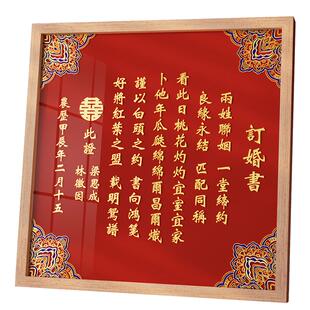 訂婚書
兩姓聯姻 一堂締約
良緣永結 匹配同稱
看此日桃花灼灼宜室宜家
卜他年瓜瓞綿綿爾昌爾熾
謹以白頭之約 書向鴻箋
好將紅葉之盟 載明鴛譜
囍 此證
梁思成
林徽因
農曆甲辰年二月十五